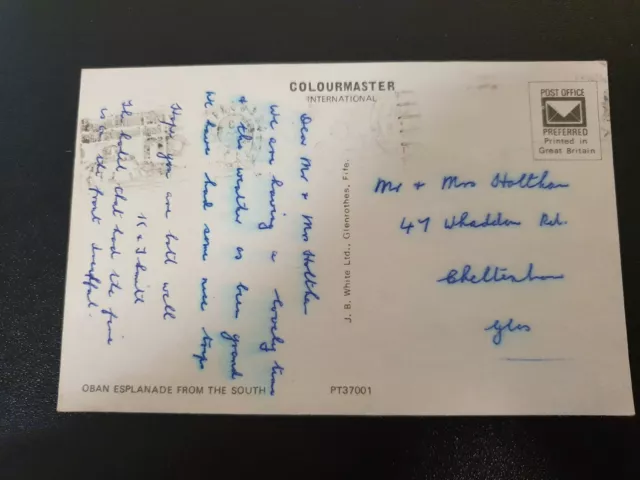 COLOURMASTER
INTERNATIONAL
POST OFFICE
PREFERRED
Printed in
Great Britain
Dear Mr & Mrs Holtham
We are having a lovely time
& the weather as been grand
We have had some nice trips
Hope you are both well
K & J Smith
The hotel that had the fire
is on the front
J. B. White Ltd., Glenrothes, Fife.
Mr + Mrs Holtham
47 Whaddon Rd.
Cheltenham
Glos
OBAN ESPLANADE FROM THE SOUTH
PT37001